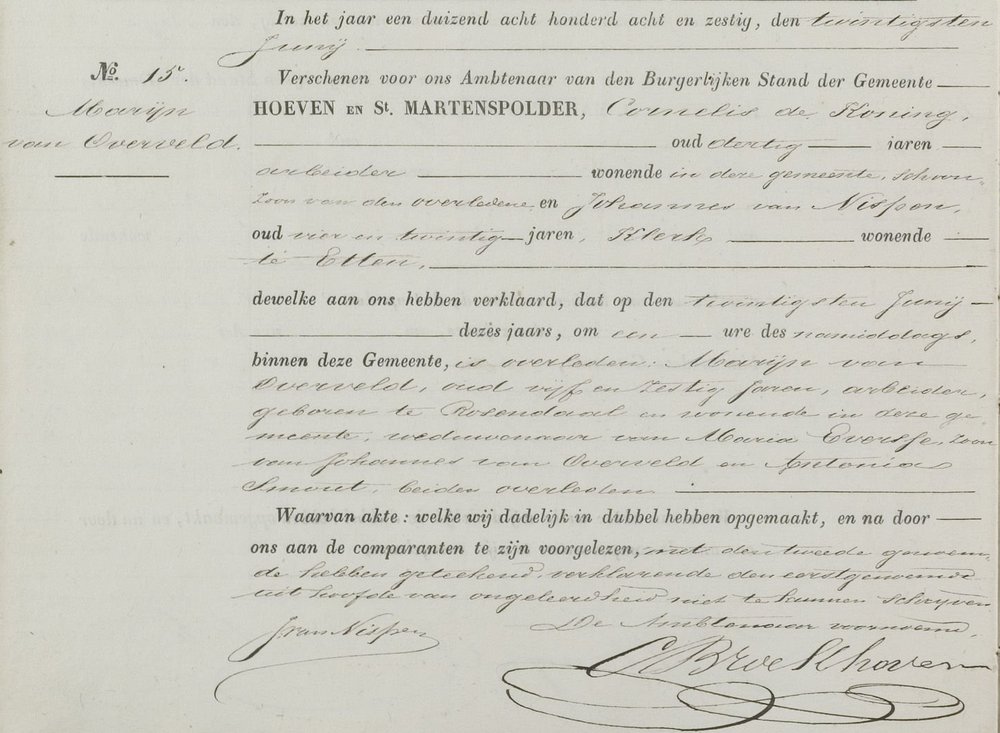 In het jaar een duizend acht honderd acht en zestig, den twintigsten
Junij
No. 15.
Marijn
van Overveld.
Verschenen voor ons Ambtenaar van den Burgerlijken Stand der Gemeente
HOEVEN EN St. MARTENSPOLDER, Cornelis de Koning,
oud dertig jaren
arbeider wonende in deze gemeente, schoon-
zoon van den overledene en Johannes van Nispen,
oud vier en twintig jaren, Klerk wonende
te Etten,
dewelke aan ons hebben verklaard, dat op den twintigsten Junij
dezes jaars, om een ure des namiddags,
binnen deze Gemeente, is overleden: Marijn van
Overveld, oud vijf en zestig Jaren, arbeider,
geboren te Rosendaal en wonende in deze ge
meente, weduwenaar van Maria Eversse, zoon
van Johannes van Overveld en Antonia
Smout, beiden overleden
Waarvan akte: welke wij dadelijk in dubbel hebben opgemaakt, en na door
ons aan de comparanten te zijn voorgelezen, met den tweede genoem-
de hebben geteekend, verklarende den eerstgenoemde
uit hoofde van ongeleerdheid niet te kunnen schrijven
De Ambtenaar voornoemd,
J van Nispen